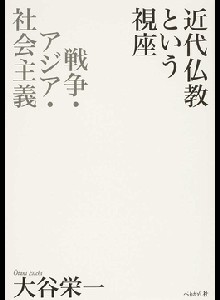 近代仏教
という
視座
戦争・
アジア・
社会主義
Ōtani Eiichi
大谷栄一
ぺりかん社